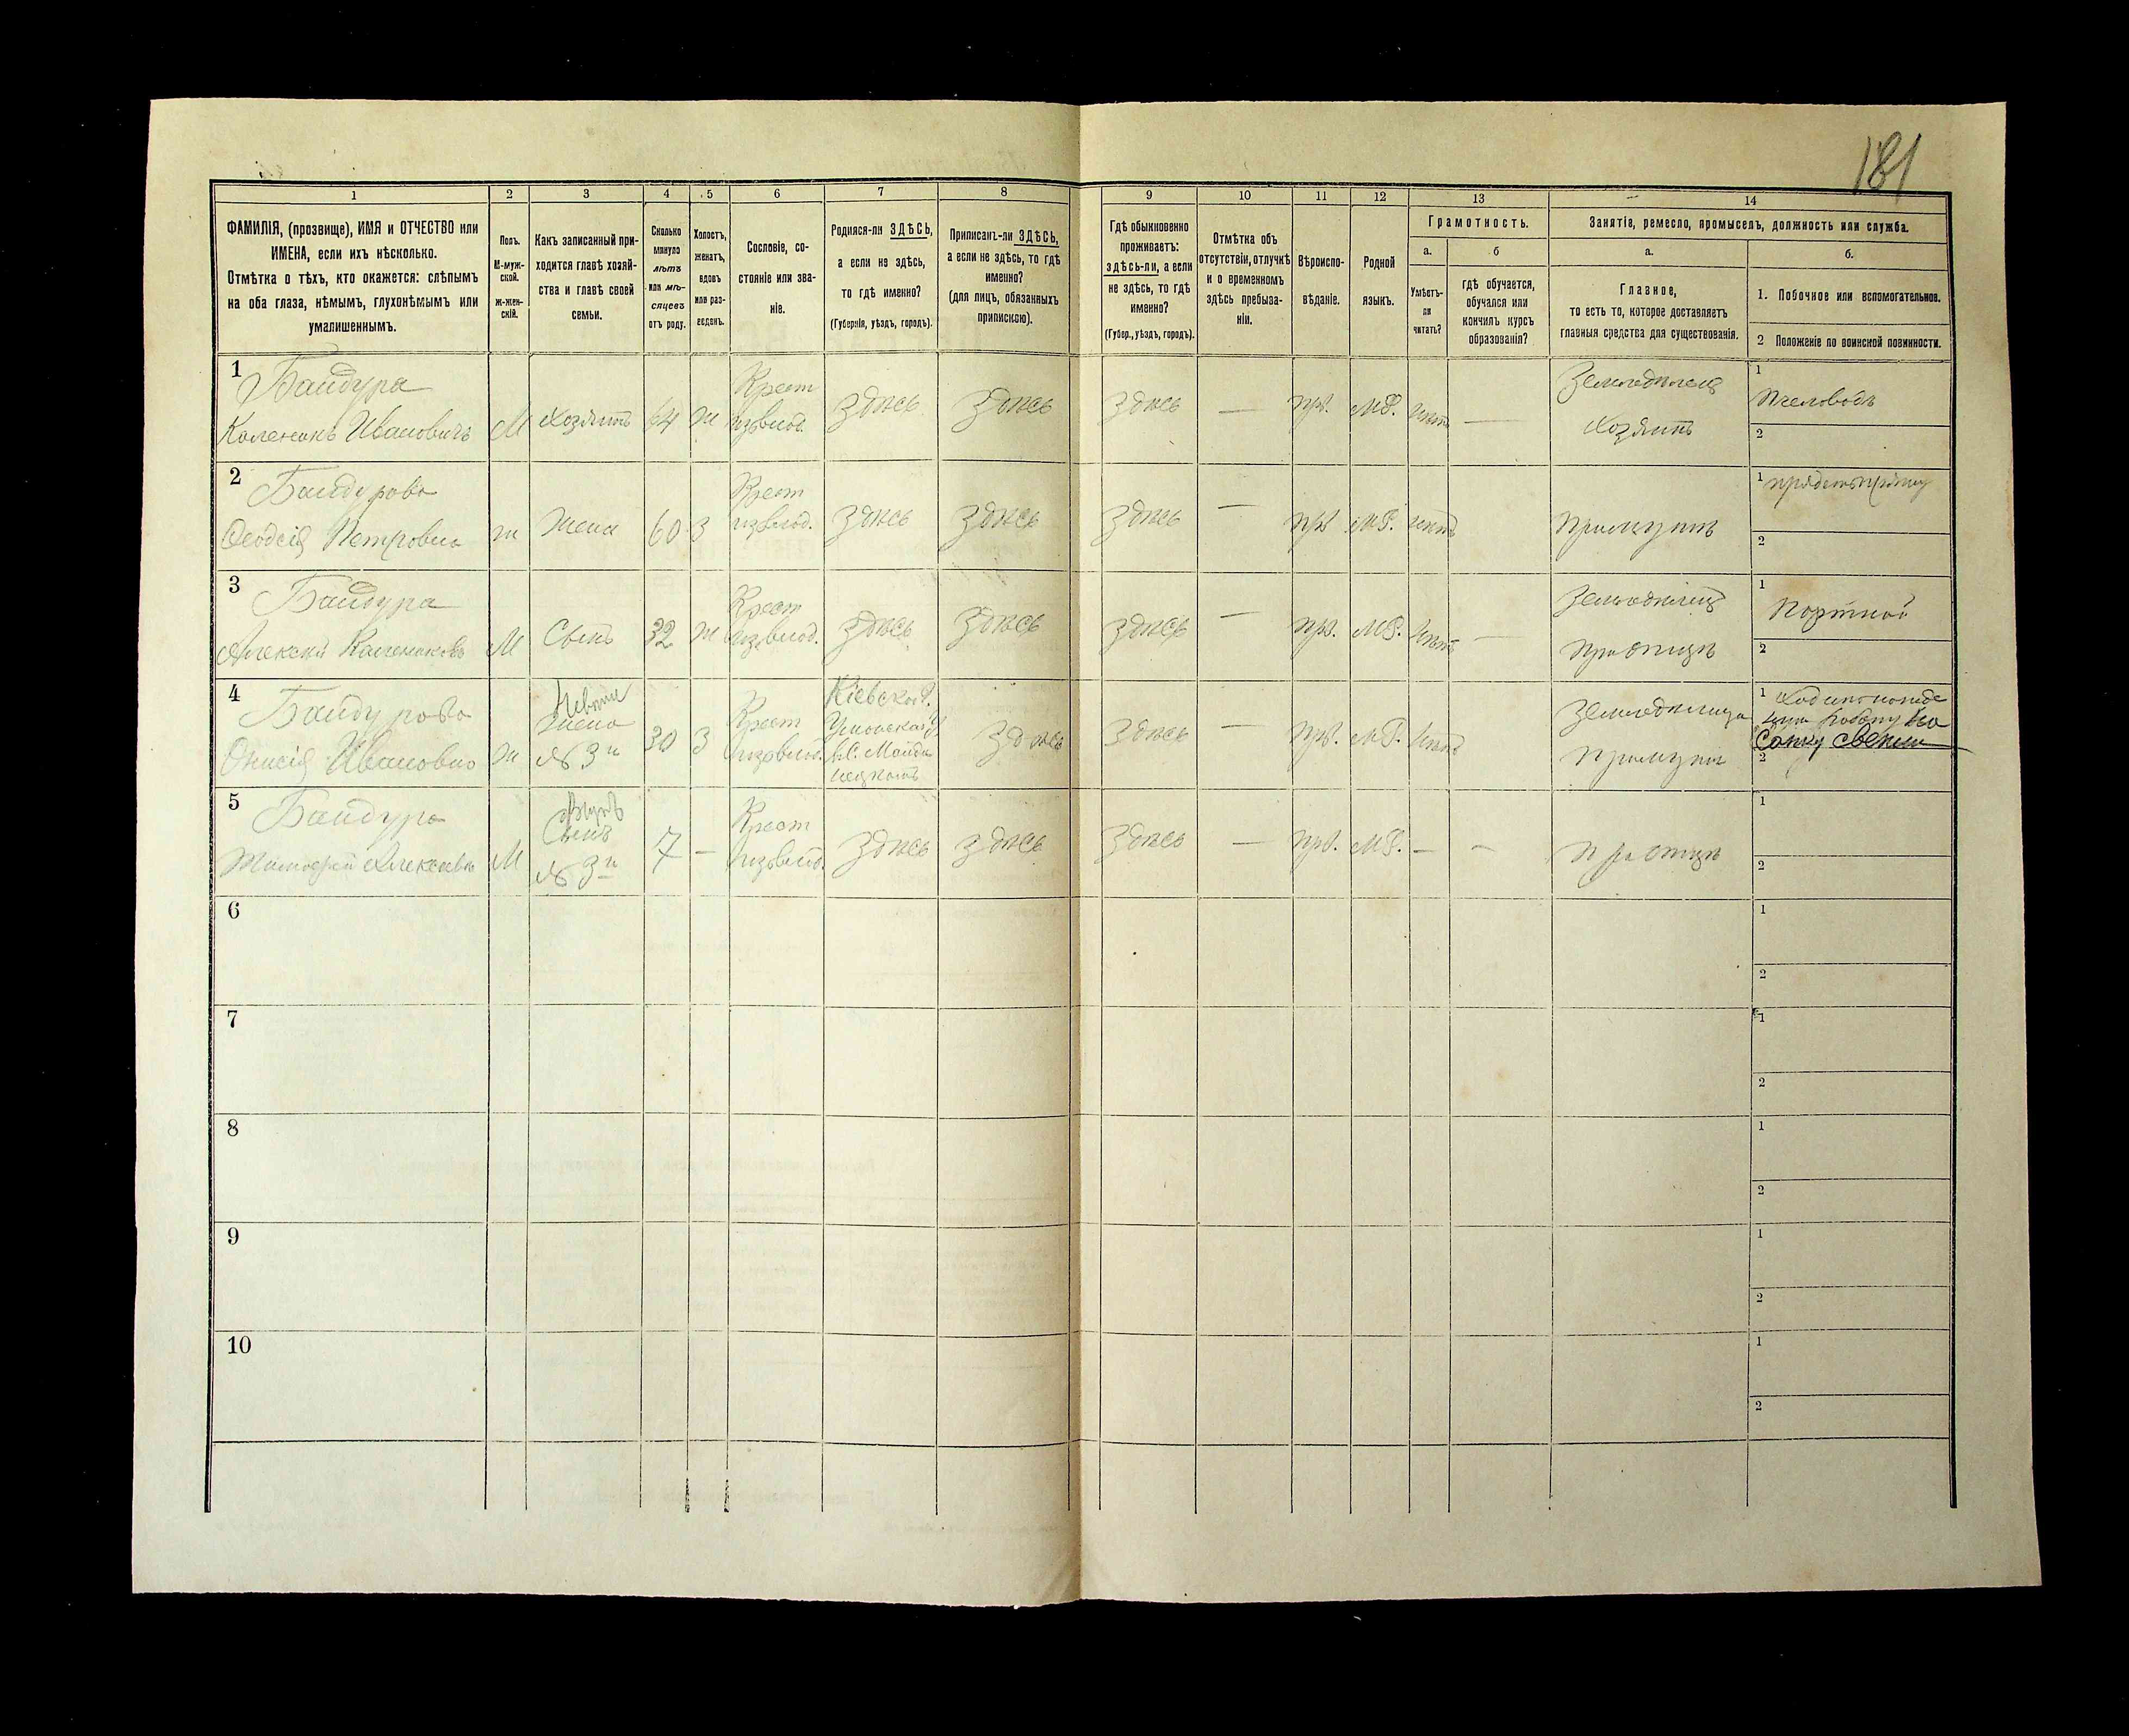 181
1
2
3
4
5
6
7
8
9
10
11
12
13
14
ФАМИЛІЯ, (прозвище), ИМЯ и ОТЧЕСТВО или
ИМЕНА, если ихъ нѣсколько.
Отмѣтка о тѣхъ, кто окажется: слѣпымъ
на оба глаза, нѣмымъ, глухонѣмымъ или
умалишеннымъ.
Полъ.
М-муж-
ской.
ж-жен-
скій.
Какъ записанный при-
ходится главѣ хозяй-
ства и главѣ своей
семьи.
Сколько
минуло
лѣтъ
или мѣ-
сяцевъ
отъ роду.
Холостъ,
женатъ,
вдовъ
или раз-
веденъ.
Сословіе, со-
стояніе или зва-
ніе.
Родился-ли ЗДѢСЬ,
а если не здѣсь,
то гдѣ именно?
(Губернія, уѣздъ, городъ).
Приписанъ-ли ЗДѢСЬ,
а если не здѣсь, то гдѣ
именно?
(для лицъ, обязанныхъ
припискою).
Гдѣ обыкновенно
проживаетъ:
здѣсь-ли, а если
не здѣсь, то гдѣ
именно?
(Губер., уѣздъ, городъ).
Отмѣтка объ
отсутствіи, отлучкѣ
и о временномъ
здѣсь пребыва-
ніи.
Вѣроиспо-
вѣданіе.
Родной
языкъ.
Грамотность.
а.
Умѣетъ-
ли
читать?
б
гдѣ обучается,
обучался или
кончилъ курсъ
образованія?
Занятія, ремесло, промыселъ, должность или служба.
а.
Главное,
то есть то, которое доставляетъ
главныя средства для существованія.
б.
1. Побочное или вспомогательное.
2 Положеніе по воинской повинности.
1
Бандура
Каленикъ Ивановичъ
М
Хозяинъ
64
ж
Крест
изъ влад.
Здѣсь
Здѣсь
Здѣсь
—
пр.
МР.
нѣтъ
—
Земледѣлецъ
Хозяинъ
1
Пчеловодъ
2
2
Бандурова
Ѳеодсія Петровна
ж
Жена
60
З
Крест
изъ влад.
Здѣсь
Здѣсь
Здѣсь
—
пр.
МР.
нѣтъ
при мужѣ
1
2
3
Бандура
Алексѣй Калениковъ
М
Сынъ
32
ж
Крест
изъ влад.
Здѣсь
Здѣсь
Здѣсь
—
пр.
МР.
Нѣтъ
—
Земледѣлецъ
при отцѣ
1
Портной
2
4
Бандурова
Онисія Ивановна
ж
Жена
№ 3й
30
З
Крест
изъ влад.
Кіевской Г.
Уманскаго У
Здѣсь
Здѣсь
—
пр.
МР.
Нѣтъ
Земледѣлица
При мужѣ
1
2
5
Бандура
Тимофей Алексѣевъ
М
Внукъ
Сынъ
№ 3й
7
—
Крест
изъ влад.
Здѣсь
Здѣсь
Здѣсь
—
пр.
МР.
—
—
При отцѣ
1
2
6
1
2
7
1
2
8
1
2
9
1
2
10
1
2